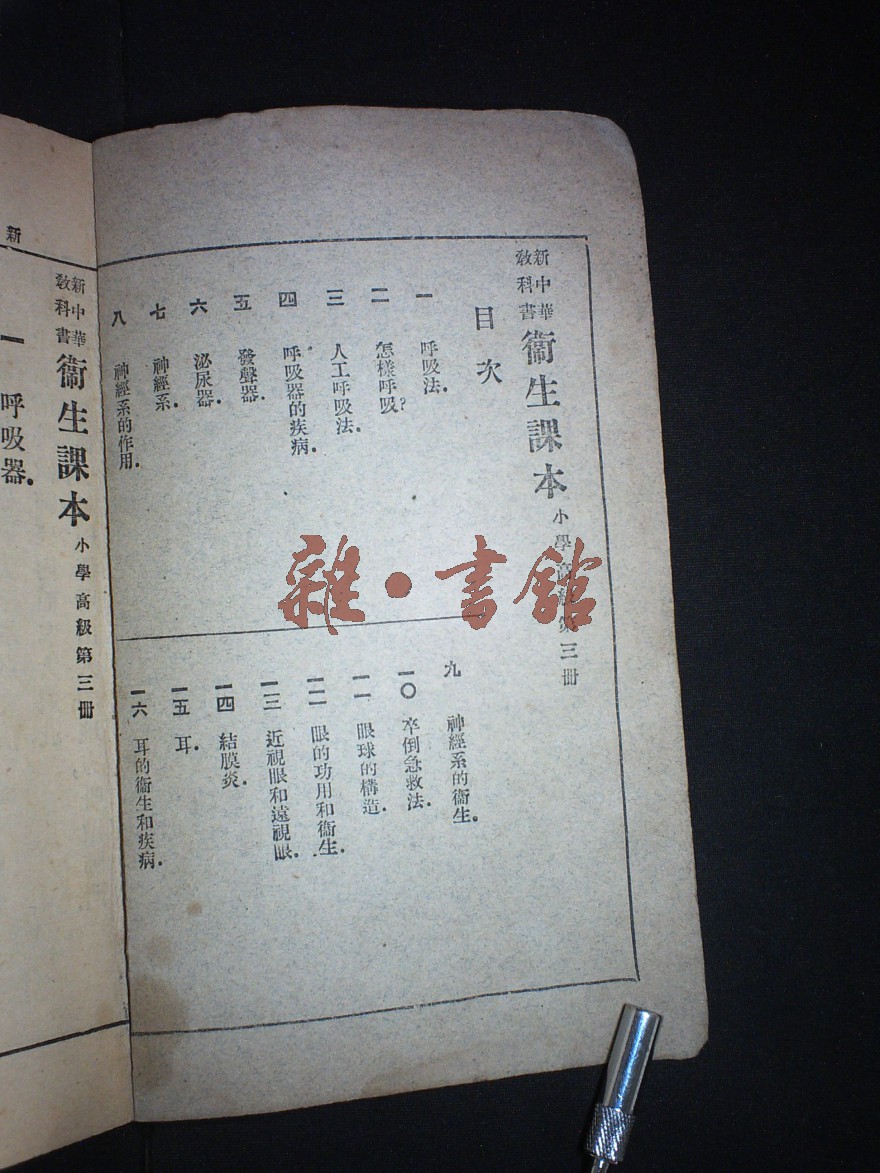 新中華
教科書
衞生課本 小學高級第三冊
目次
一 呼吸法.
二 怎樣呼吸?
三 人工呼吸法.
四 呼吸器的疾病.
五 發聲器.
六 泌尿器.
七 神經系.
八 神經系的作用.
九 神經系的衞生.
一〇 卒倒急救法.
一一 眼球的構造.
一二 眼的功用和衞生.
一三 近視眼和遠視眼.
一四 結膜炎.
一五 耳.
一六 耳的衞生和疾病.
雜·書館
新
新中華
教科書
衞生課本 小學高級第三冊
一 呼吸器.